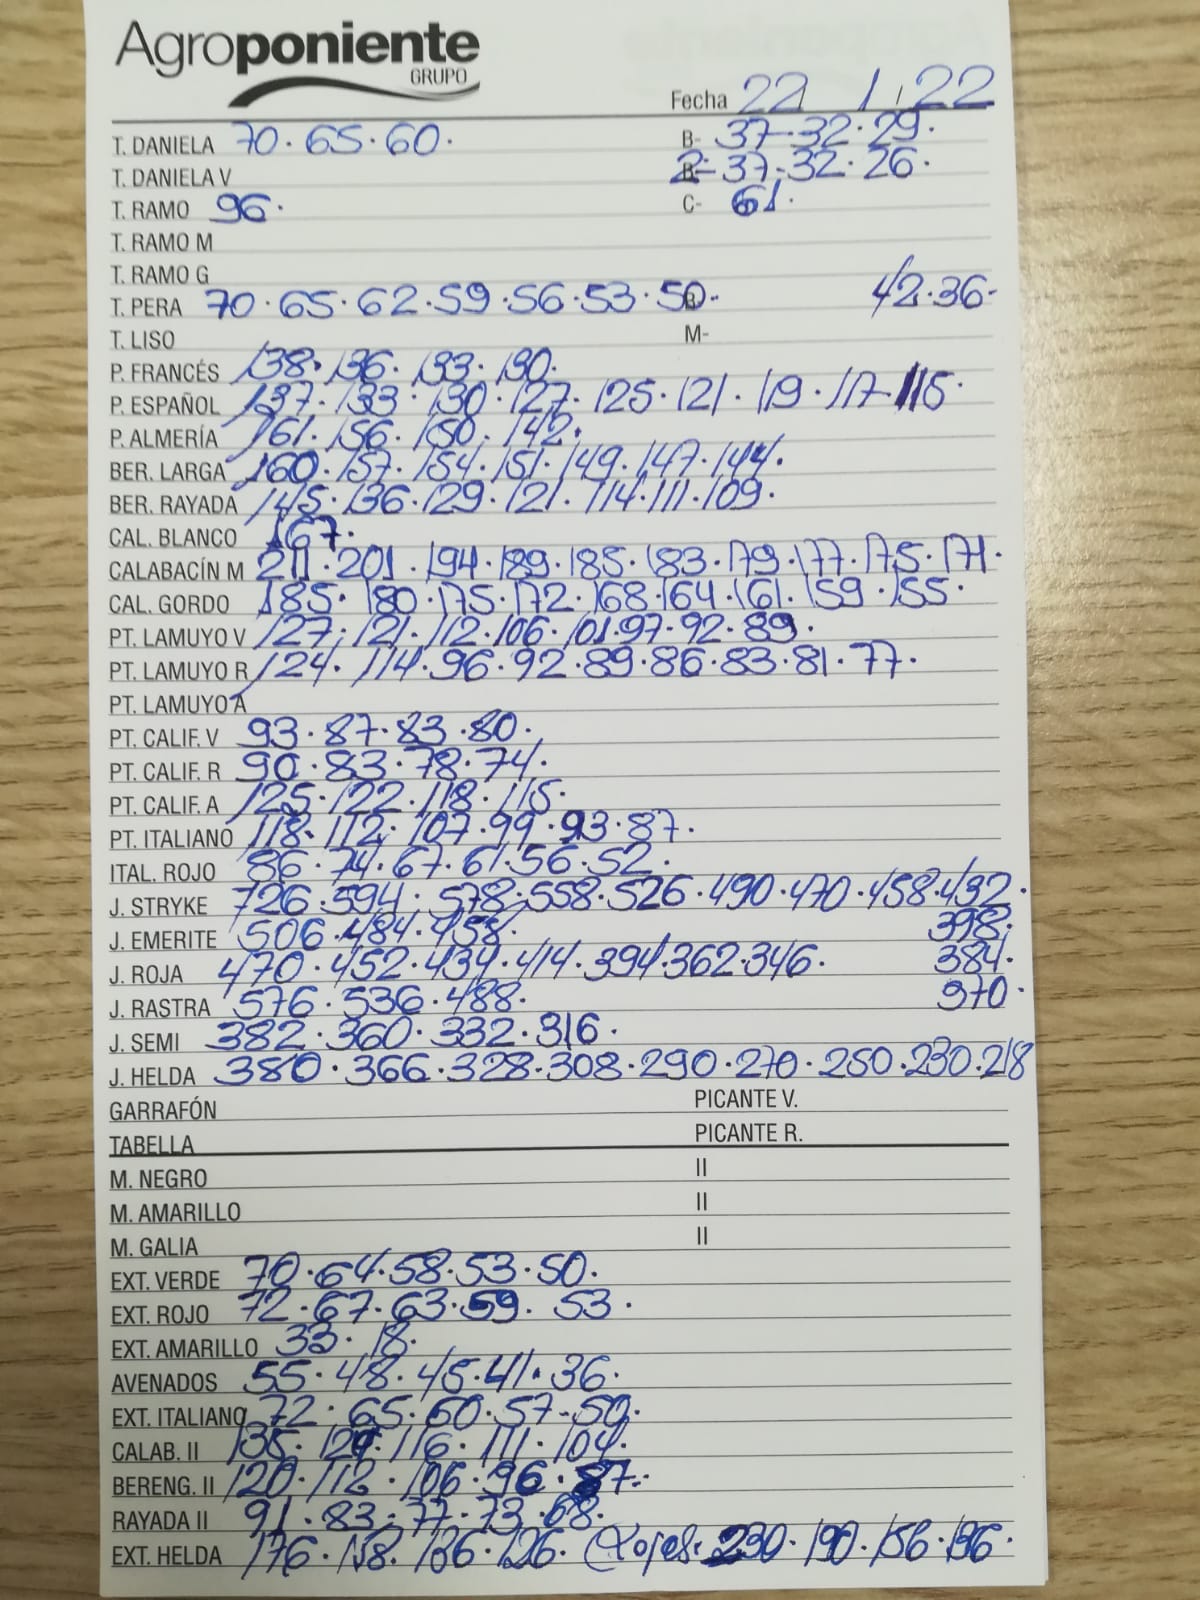 Agroponiente
GRUPO
Fecha 22 / 1 / 22
T. DANIELA 70. 65. 60. B- 37-32. 29.
T. DANIELA V 2- 37-32. 26.
T. RAMO 96. C- 61.
T. RAMO M
T. RAMO G
T. PERA 70. 65. 62. 59. 56. 53. 50. 42. 36.
T. LISO M-
P. FRANCÉS 138. 136. 133. 130.
P. ESPAÑOL 137. 133. 130. 127. 125. 121. 119. 117. 115.
P. ALMERÍA 161. 156. 150. 142.
BER. LARGA 160. 157. 154. 151. 149. 147. 144.
BER. RAYADA 145. 136. 129. 121. 114. 111. 109.
CAL. BLANCO 167.
CALABACÍN M 211. 201. 194. 189. 185. 183. 179. 177. 175. 171.
CAL. GORDO 185. 180. 175. 172. 168. 164. 161. 159. 155.
PT. LAMUYO V 127. 121. 112. 106. 101. 97. 92. 89.
PT. LAMUYO R 124. 114. 96. 92. 89. 86. 83. 81. 77.
PT. LAMUYO A
PT. CALIF. V 93. 87. 83. 80.
PT. CALIF. R 90. 83. 78. 74.
PT. CALIF. A 125. 122. 118. 115.
PT. ITALIANO 118. 112. 107. 99. 93. 87.
ITAL. ROJO 86. 74. 67. 61. 56. 52.
J. STRYKE 726. 594. 578. 558. 526. 490. 470. 458. 432.
J. EMERITE 506. 484. 458. 398.
J. ROJA 470. 452. 434. 414. 394. 362. 346. 384.
J. RASTRA 576. 536. 488. 370.
J. SEMI 382. 360. 332. 316.
J. HELDA 380. 366. 328. 308. 290. 270. 250. 230. 218
GARRAFÓN PICANTE V.
TABELLA PICANTE R.
M. NEGRO II
M. AMARILLO II
M. GALIA II
EXT. VERDE 70. 64. 58. 53. 50.
EXT. ROJO 72. 67. 63. 59. 53.
EXT. AMARILLO 33. 18.
AVENADOS 55. 48. 45. 41. 36.
EXT. ITALIANO 72. 65. 60. 57. 50.
CALAB. II 135. 116. 111. 104.
BERENG. II 120. 112. 106. 96. 87.
RAYADA II 91. 83. 77. 73. 68.
EXT. HELDA 176. 158. 136. 126. (Rojas. 230. 190. 156. 136.